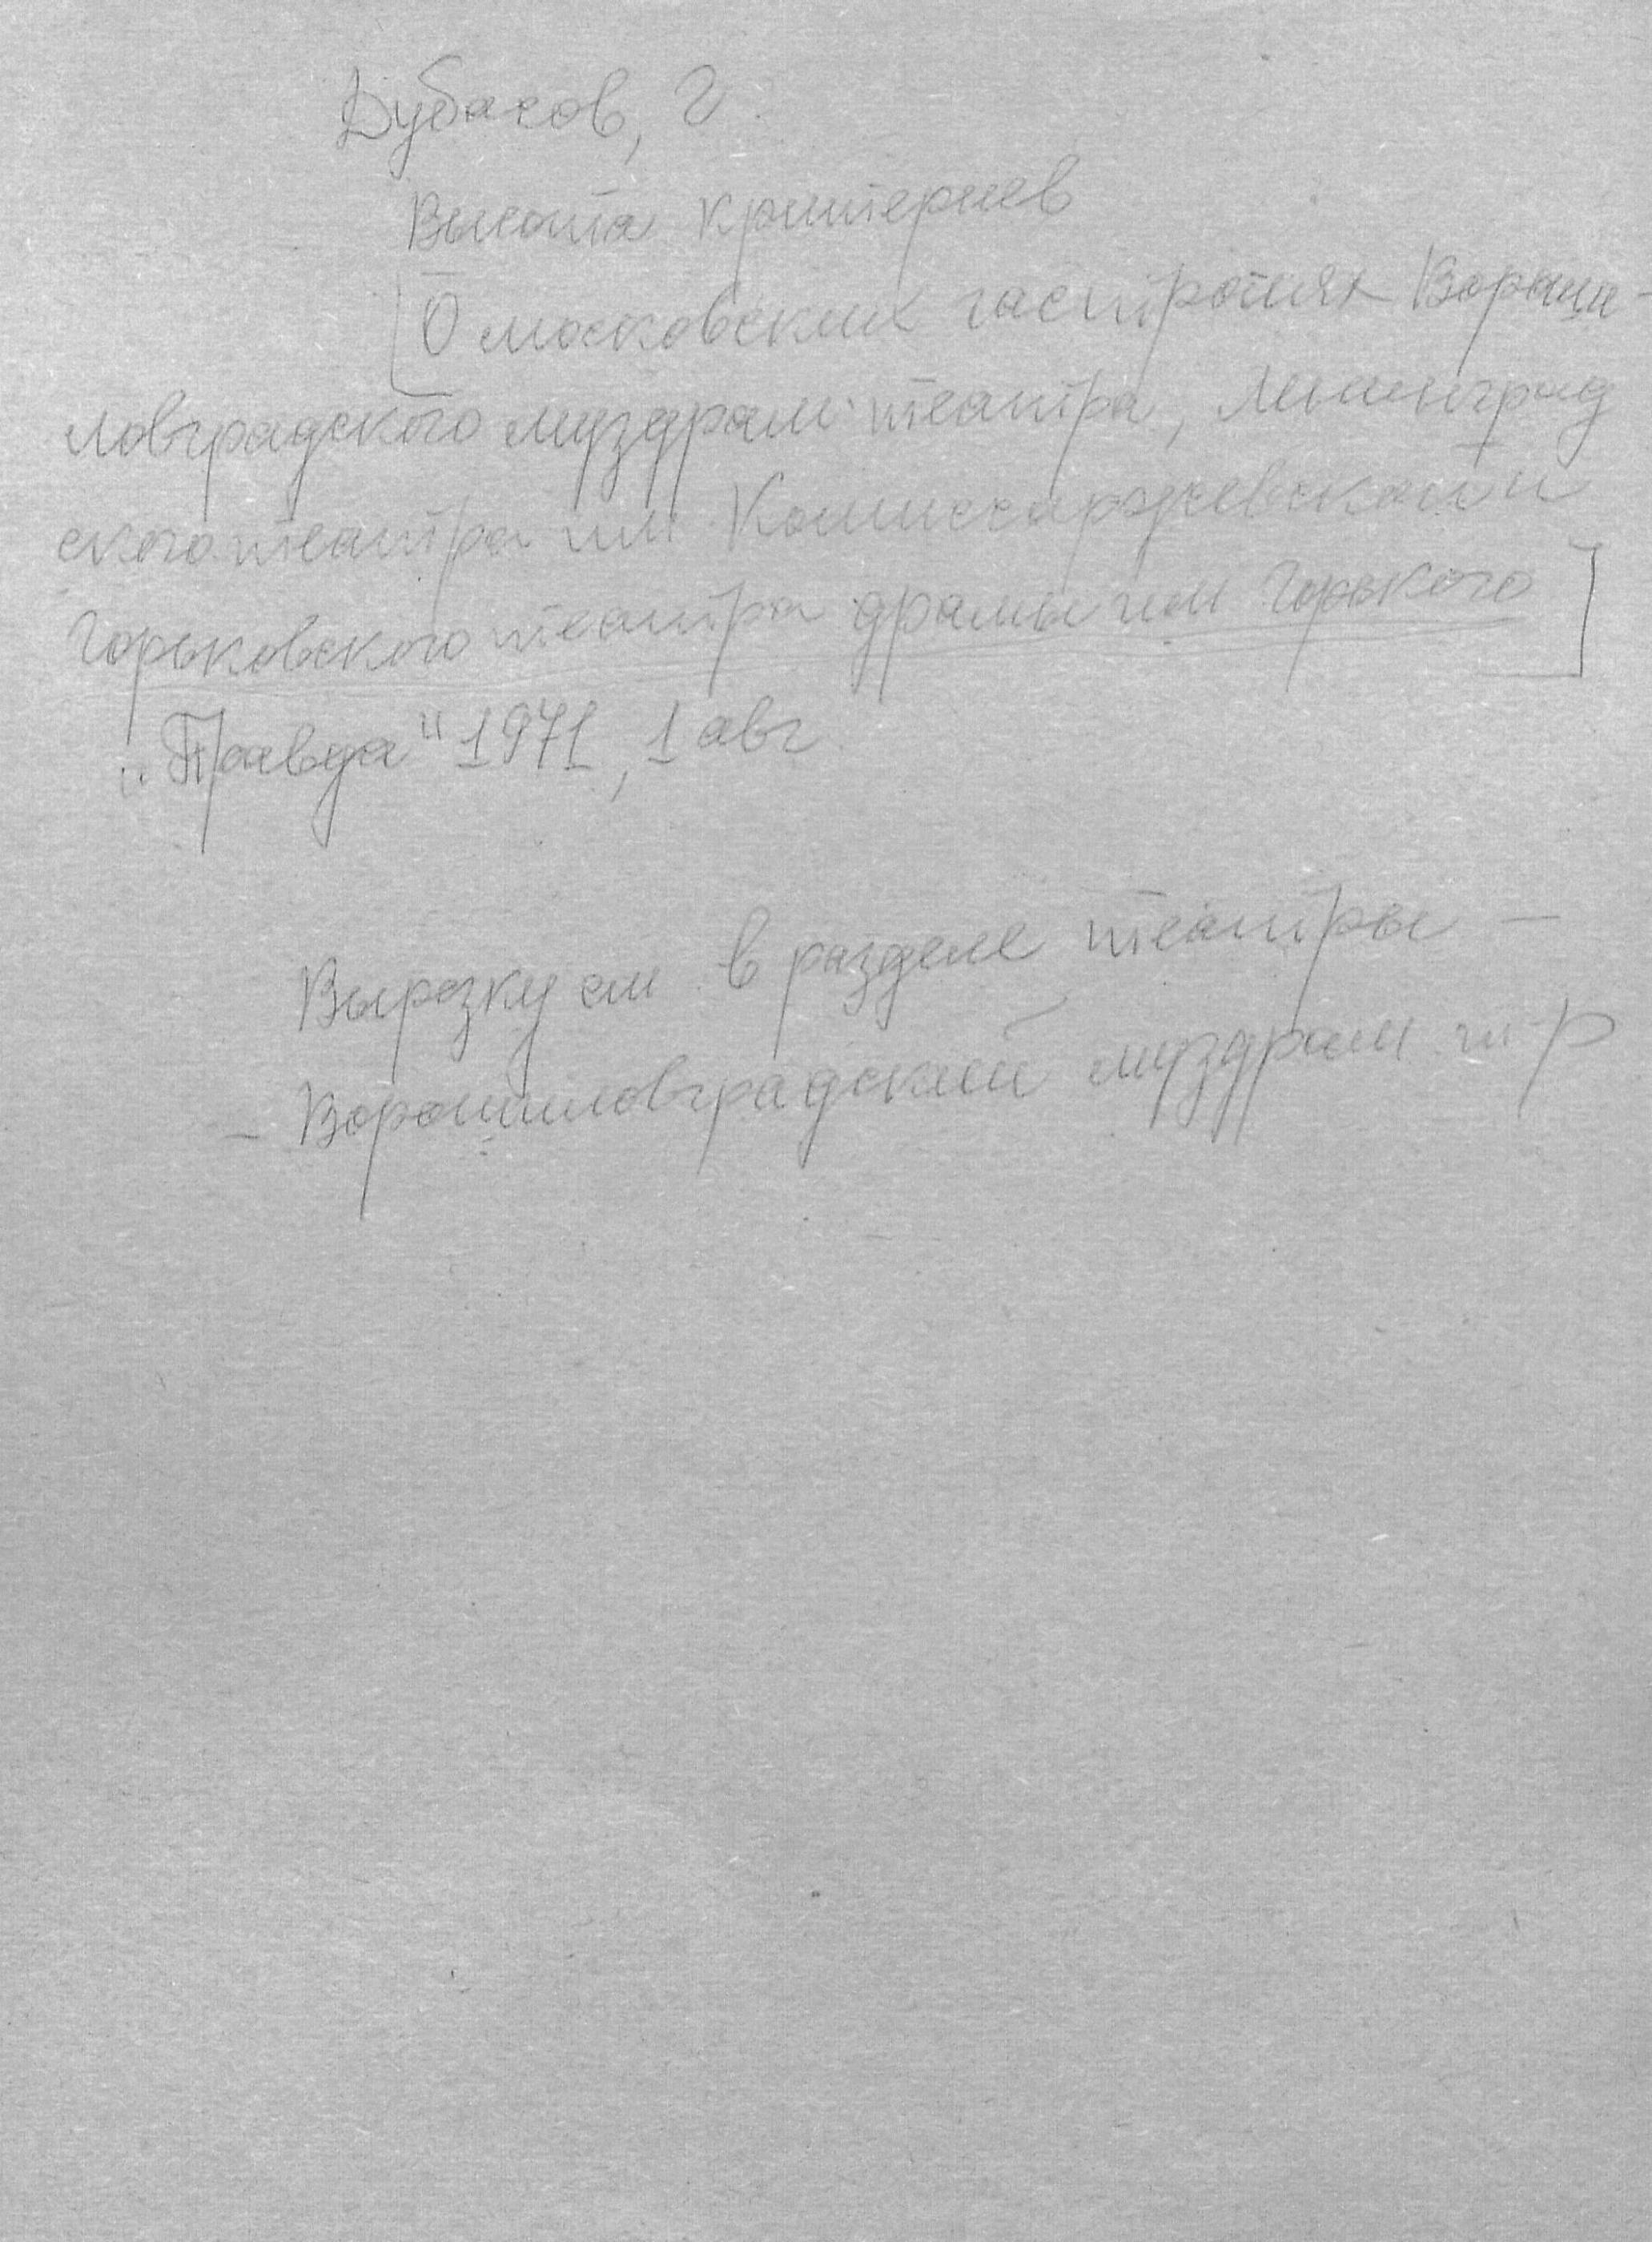 Дубасов, Г.
Высота критериев
[О московских гастролях Вороши-
ловградского муздрам. театра, Ленинград
ского театра им. Комиссаржевской и
Горьковского театра драмы им. Горького]
„Правда" 1971, 1 авг.
Вырезку см. в разделе театры —
— Ворошиловградский муздрам. т-р